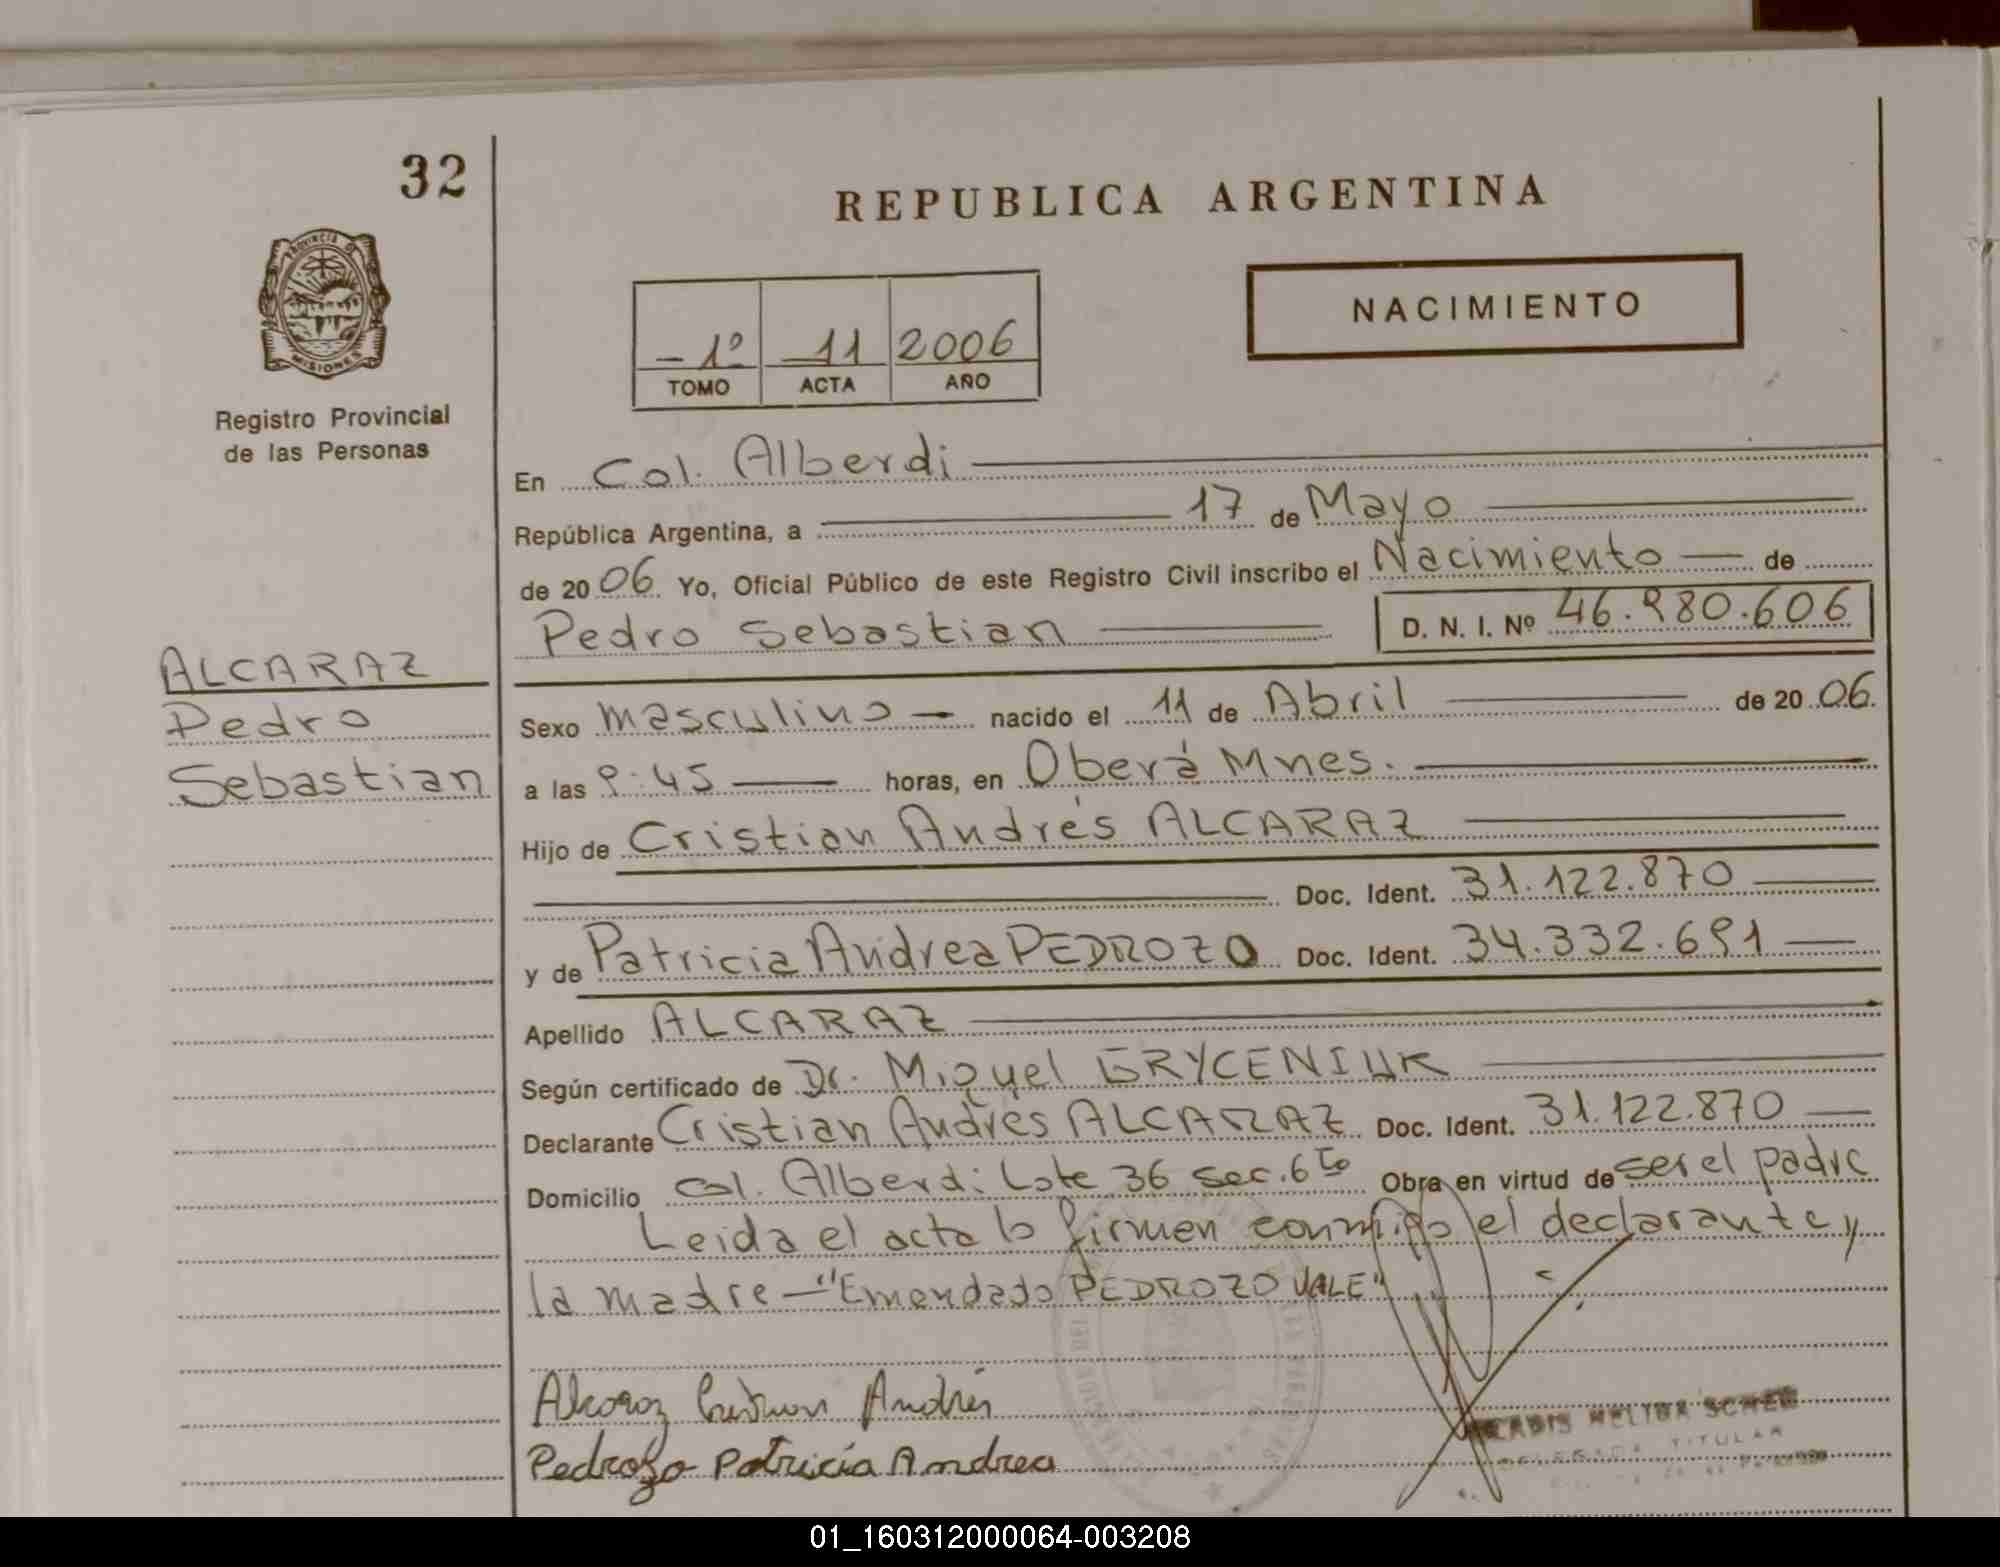 32
REPUBLICA ARGENTINA
PROVINCIA DE
MISIONES
Registro Provincial
de las Personas
NACIMIENTO
-1º 11 2006
TOMO ACTA AÑO
En Col. Alberdi
República Argentina, a 17 de Mayo
de 2006 Yo, Oficial Público de este Registro Civil inscribo el Nacimiento de
Pedro Sebastian D. N. I. Nº 46.980.606
ALCARAZ
Pedro
Sebastian
Sexo masculino nacido el 11 de Abril de 2006.
a las 9:45 horas, en Oberá Mnes.
Hijo de Cristian Andrés ALCARAZ
Doc. Ident. 31.122.870
y de Patricia Andrea PEDROZO Doc. Ident. 34.332.691
Apellido ALCARAZ
Según certificado de Dr. Miguel GRYCENIUK
Declarante Cristian Andrés ALCARAZ Doc. Ident. 31.122.870
Domicilio Col. Alberdi Lote 36 sec. 6to Obra en virtud de ser el padre
Leida el acta lo firmen conmigo el declarante y
la madre - "Emendado PEDROZO VALE"
Alcaraz Cristian Andrés
Pedrozo Patricia Andrea
TITULAR
01_160312000064-003208